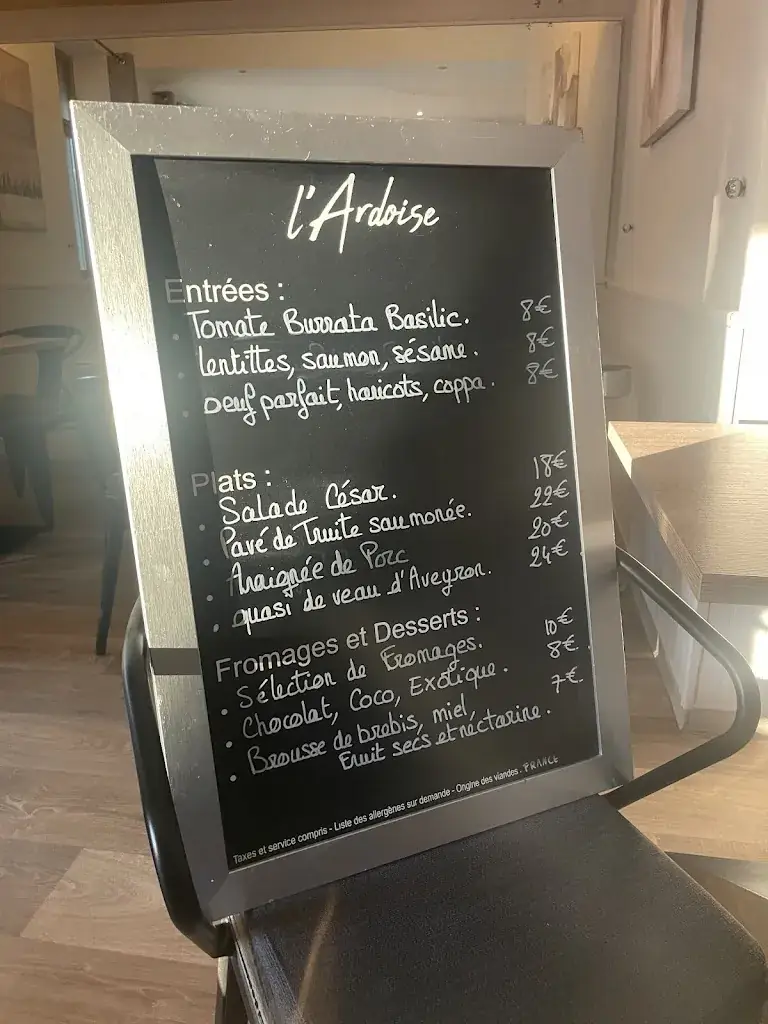 l'Ardoise
Entrées :
. Tomate Burrata Basilic. 8€
. lentittes, saumon, sésame. 8€
. oeuf parfait, haricots, coppa. 8€
Plats :
. Salade César. 18€
. Pavé de Truite saumonée. 22€
. Araignée de Porc 20€
. quasi de veau d'Aveyron. 24€
Fromages et Desserts :
. Sélection de Fromages. 10€
. Chocolat, Coco, Exotique. 8€
. Brousse de brebis, miel, 7€
Fruit secs et néctarine.
Taxes et service compris - Liste des allergènes sur demande - Origine des viandes. FRANCE